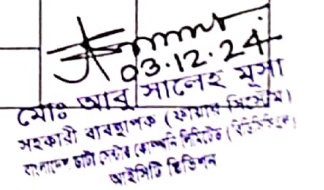 03.12.24
মোঃ আবু সালেহ মুসা
সহকারী ব্যবস্থাপক (ফায়ার সিস্টেম)
বাংলাদেশ ডাটা সেন্টার কোম্পানি লিমিটেড (বিডিসিসিএল)
আইসিটি ডিভিশন